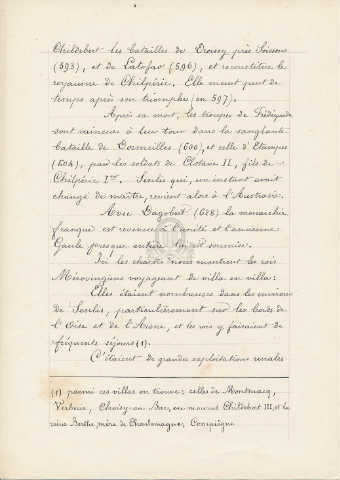 Childebert les batailles de Droissy près Soissons
(593), et de Latofao (596), et reconstitue le
royaume de Chilpéric. Elle meurt peu de
temps après son triomphe (en 597).
Après sa mort, les troupes de Frédégonde
sont vaincues à leur tour dans la sanglante
bataille de Dormeilles (600), et celle d'Etampes
(604), par les soldats de Clotaire II, fils de
Chilpéric Ier. Senlis qui, un instant avait
changé de maître, revient alors à l'Austrasie.
Avec Dagobert (628) la monarchie
franque est revenue à l'unité et l'ancienne
Gaule presque entière lui est soumise.
Ici les chartes nous montrent les rois
Mérovingiens voyageant de villa en villa:
Elles étaient nombreuses dans les environs
de Senlis, particulièrement sur les bords de
l'Oise et de l'Aisne, et les rois y faisaient de
fréquents séjours (1).
C'étaient de grandes exploitations rurales
(1) parmi ces villas on trouve: celles de Montmacq,
Verberie, Choisy-au-Bac, où mourut Childebert III, et la
reine Berthe, mère de Charlemagne, Compiègne